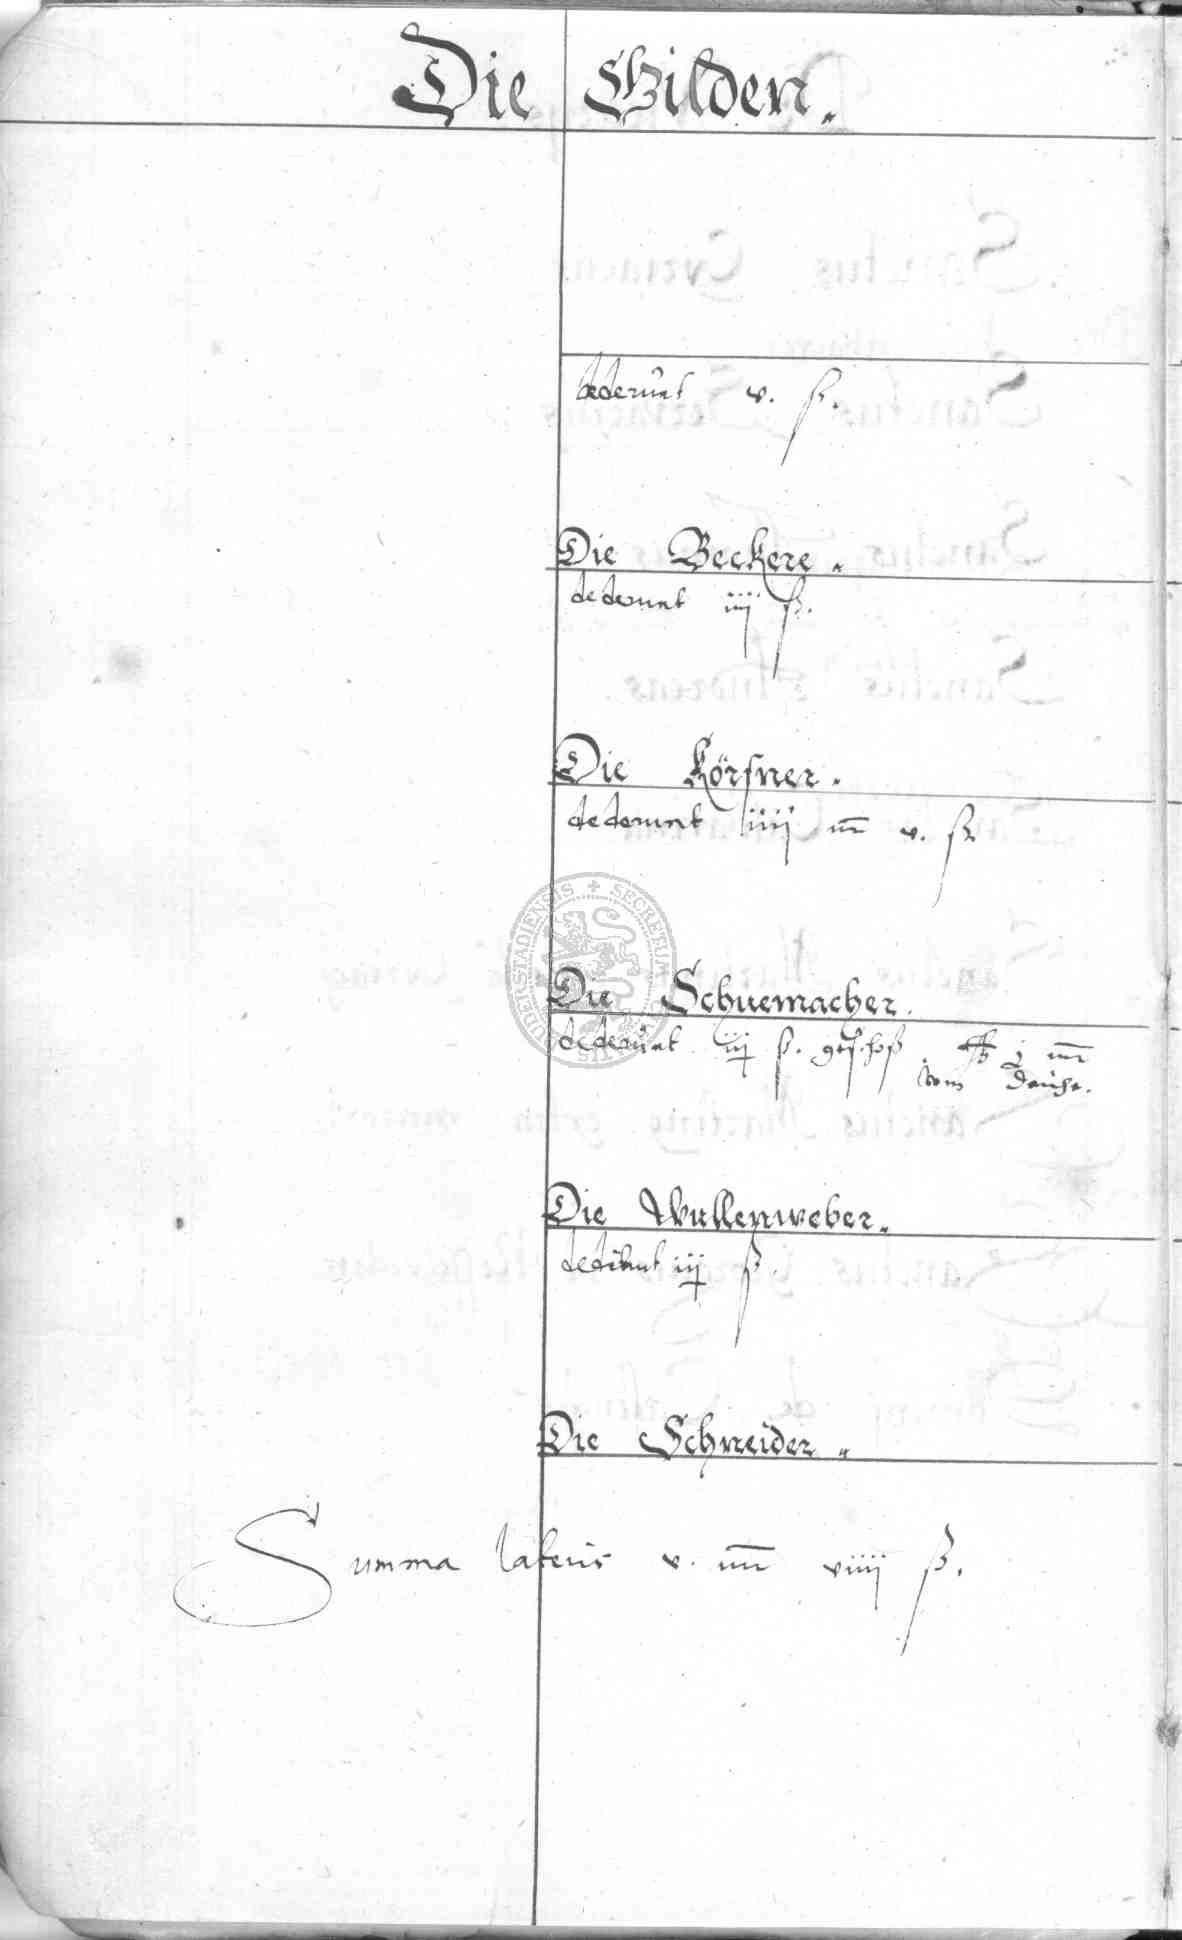 Die Gilden.
dederunt v. ß.
Die Beckere.
dederunt iiij ß.
Die Körsner.
dederunt iiiij mr v. ß
Die Schuemacher.
dederunt iij ß. geschoß j mr
vom
Die Wullenweber.
dederunt iij ß.
Die Schneider.
Summa lateris v. mr viiij ß.
SECRETUM
DUDERSTADIENSIS